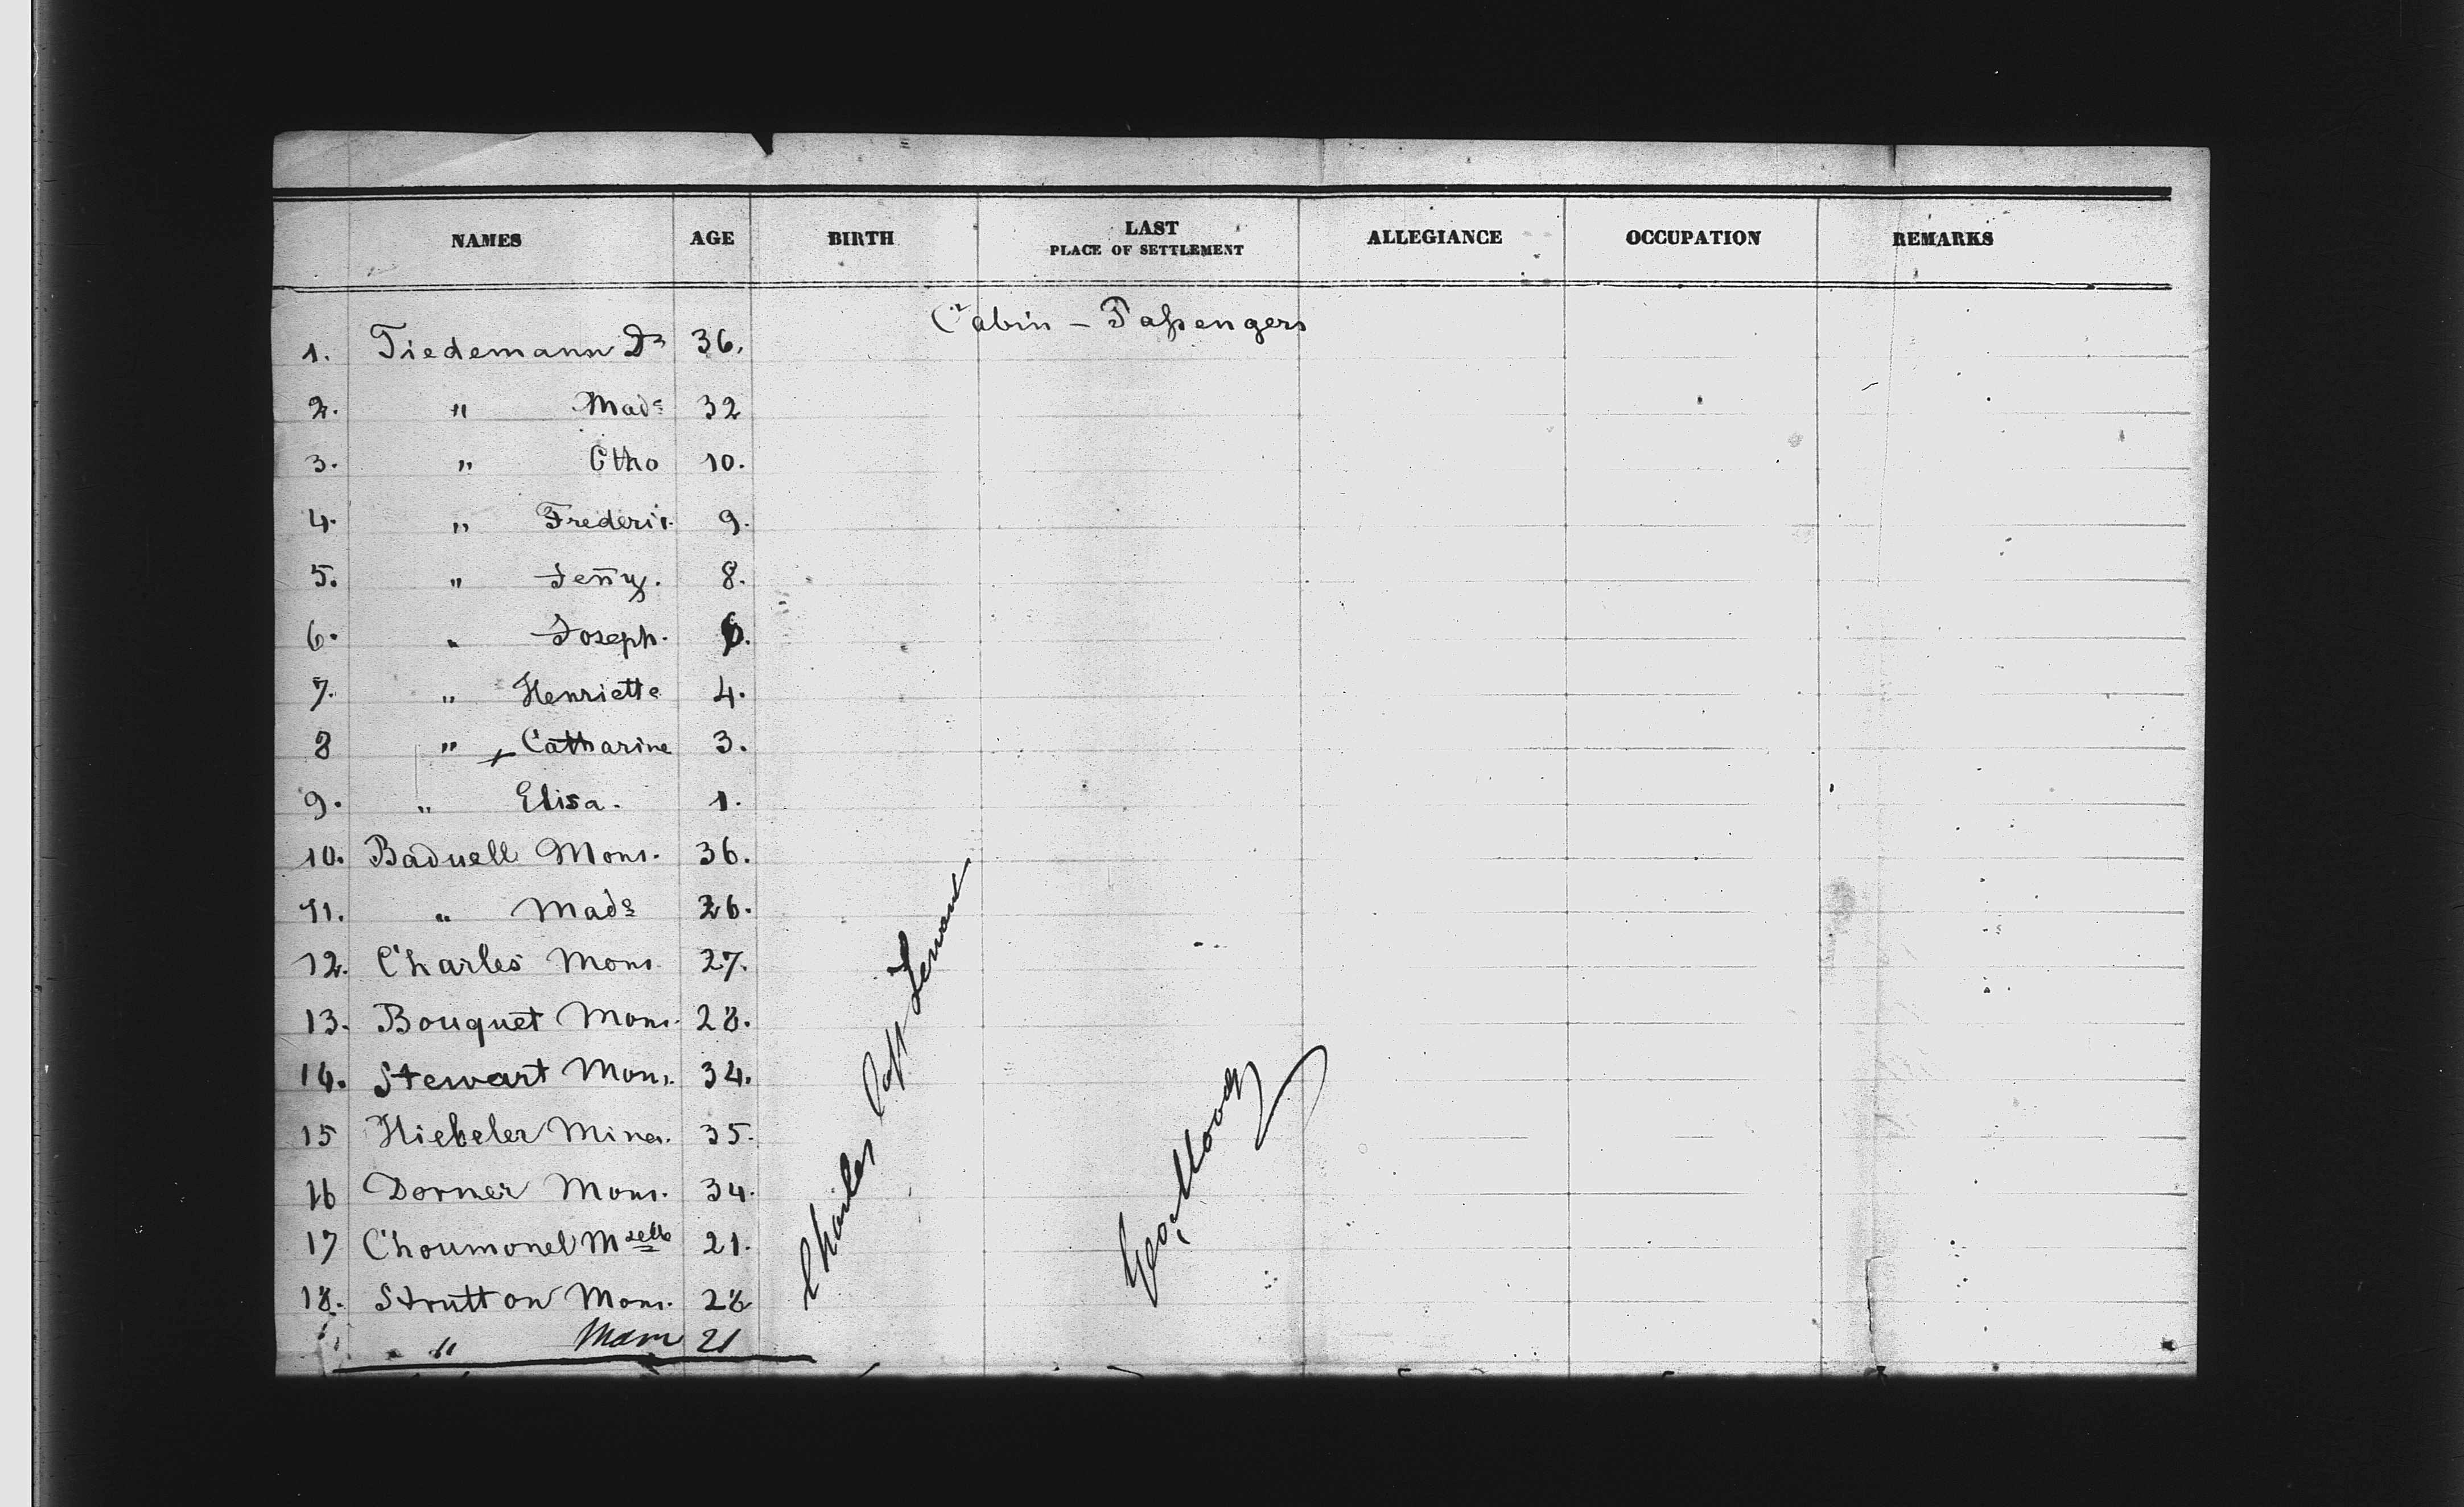 NAMES AGE BIRTH LAST PLACE OF SETTLEMENT ALLEGIANCE OCCUPATION REMARKS
Cabin - Passengers
1. Tiedemann Dr 36.
2. " Made 32
3. " Otho 10.
4. " Frederic 9.
5. " Jeñy. 8.
6. " Joseph. 6.
7. " Henriette 4.
8 " Catharine 3.
9. " Elisa. 1.
10. Baduell Mons. 36.
11. " Made 26.
12. Charles Mons. 27.
13. Bouquet Mons. 28.
14. Stewart Mons. 34.
15 Hiebeler Mina. 35.
16 Dorner Mons. 34.
17 Choumonel Mselle 21.
18. Strutton Mons. 28
" Mam 21
Charles
Geo. Moody